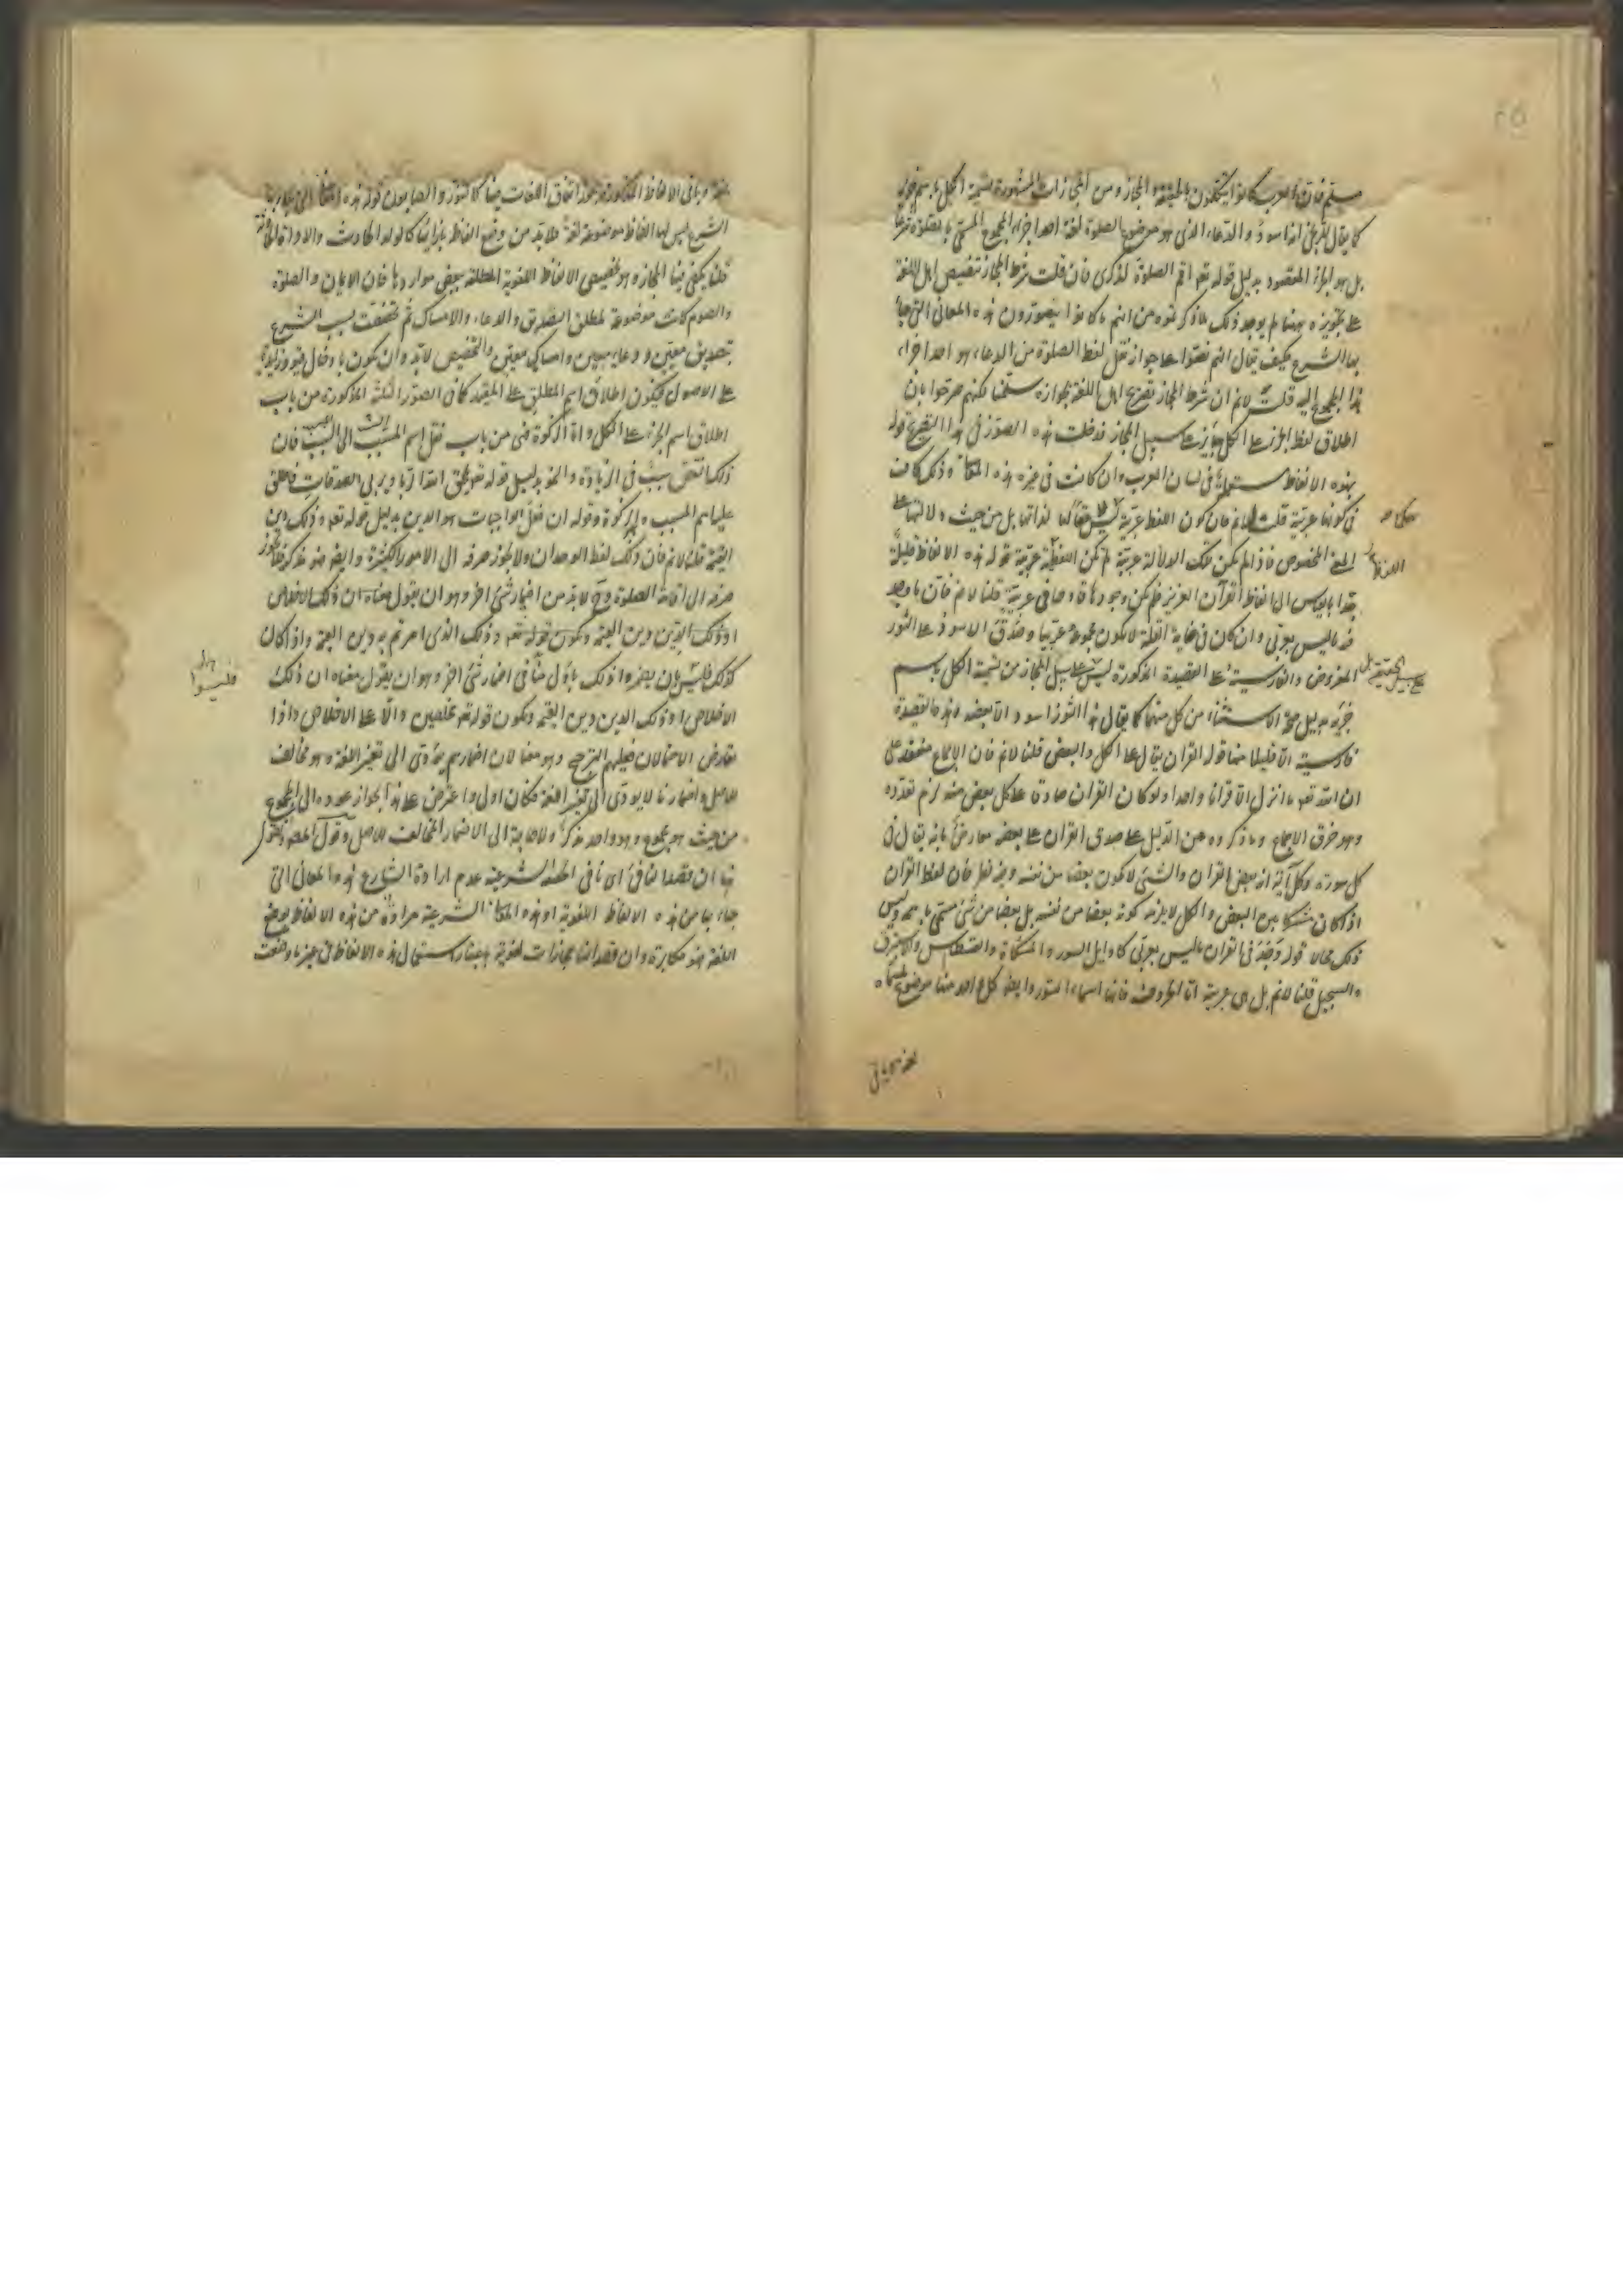 مسلم فان العرب كانوا يتكلمون بالحقيقة والمجاز ومن المجازات المشهورة تسمية الكل باسم جزئه
كما يقال للزنجى انه اسود والدعاء الذى هو موضوع الصلوة لغة احد اجزاء المجموع المسمى بالصلوة شرعا
بل هو الجزء المقصود بدليل قوله تعه اقم الصلوة لذكرى فان قلت شرط المجاز تنصيص اهل اللغة
على تجويزه وههنا لم يوجد ذلك لما ذكرتموه من انهم ما كانوا يتصورون هذه المعانى التى جاء
بها الشرع فكيف يقال انهم نصوا على جواز نقل لفظ الصلوة من الدعاء هو احد اجزاء
هذا المجموع اليه قلت لانم ان شرط المجاز تصريح اهل اللغة بجوازه سلمنا لكنهم صرحوا بان
اطلاق لفظ الجزء على الكل جائز على سبيل المجاز فدخلت هذه الصور فى هذا التصريح قوله
هذه الالفاظ مستعملة فى لسان العرب وان كانت فى غيره هذه المعانى وذلك كاف
فى كونها عربية قلت لانم فان كون اللفظ عربية ليس حكما لذاتها بل من حيث دلالتها على
المعنى المخصوص فاذا لم يكن تلك الدلالة عربية لم تكن اللفظة عربية قوله هذه الالفاظ قليلة
جدا بالقياس الى الفاظ القرآن العزيز فلم يكن وجودها قادحا فى عربيته قلنا لانم فان ما وجد
فيه ما ليس بعربى وان كان فى غاية القلة لا يكون مجموعه عربيا وصدق الاسود على الثور
المفروض والفارسية على القصيدة المذكورة ليس على سبيل المجاز من تسمية الكل باسم
جزئه بدليل صحة الاستثناء من كل منهما كما يقال هذا الثور اسود الا بعضه وهذه القصيدة
فارسية الا قليلا منها قوله القران يقال على الكل والبعض قلنا لانم فان الاجماع منعقد على
ان الله تعه ما انزل الا قرانا واحدا ولو كان القران صادقا على كل بعض منه لزم تعدده
وهو خرق الاجماع وما ذكروه من الدليل على صدق القران على بعضه معارض بانه يقال فى
كل سورة وكل آية انه بعض القران والشئ لا يكون بعضا من نفسه وفيه نظر فان لفظ القران
اذا كان مشتركا بين البعض والكل لا يلزم كونه بعضا من نفسه بل بعضا من شئ مسمى باسمه وليس
ذلك محالا قوله وجد فى القران ما ليس بعربى كاوايل السور والمشكاة والقسطاس والاستبرق
والسجيل قلنا لانم بل هى عربية اما الحروف فانها اسماء السور وايضا كل واحد منها موضوع لمسماه
وباقى الالفاظ المذكورة يجوز اتفاق اللغات فيها كالتنور والصابون قوله هذه المعانى التى جاء بها
الشرع ليس لها الفاظ موضوعة لغة فلا بد من وضع الفاظ بازائها كالولد الحادث والادوات الحادثة
قلنا يكفى فيها المجاز وهو تخصيص الالفاظ اللغوية المطلقة ببعض مواردها فان الايمان والصلوة
والصوم كانت موضوعة لمطلق التصديق والدعاء والامساك ثم تخصصت بسبب الشرع
بتصديق معين ودعاء معين وامساك معين والتخصيص لابد وان يكون بادخال قيود زايدة
على الاصول فيكون اطلاق اسم المطلق على المقيد كما فى الصور الثلثة المذكورة من باب
اطلاق اسم الجزء على الكل واما الزكوة فهى من باب نقل اسم المسبب الى السبب فان
ذلك النقص سبب فى الزيادة والنمو بدليل قوله تعه يمحق الله الربا ويربى الصدقات فاطلق
عليها اسم المسبب وهو الزكوة وقوله ان فعل الواجبات هو الدين بدليل قوله تعه وذلك دين
القيمة قلنا لانم فان ذلك لفظ الوحدان ولا يجوز صرفه الى الامور الكثيرة وايضا هو مذكر فلا يجوز
صرفه الى اقامة الصلوة وح لابد من اضمار شئ اخر وهو ان يقول معناه ان ذلك الاخلاص
او ذلك التدين دين القيمة ويكون قوله تعه وذلك الذى امرتم به دين القيمة واذا كان
كذلك فليسوا بان يضمروا ذلك باولى منا فى اضمار شئ اخر وهو ان يقول معناه ان ذلك
الاخلاص او ذلك التدين دين القيمة ويكون قوله تعه مخلصين دالا على الاخلاص واذا
تعارض الاحتمالان فعليهم الترجيح وهو معنا لان اضمارهم يؤدى الى تغيير اللغة وهو مخالف
للاصل واضمارنا لا يودى الى تغيير اللغة فكان اولى واعترض على هذا بجواز عوده الى المجموع
من حيث هو مجموع وهو واحد مذكر ولا حاجة الى الاضمار المخالف للاصل وقول المص ونقول
نهاية ان قصد النافى اى نافى الحقيقة الشرعية عدم ارادة الشارع هذه المعانى التى
جاء بها من هذه الالفاظ اللغوية او هذه المعانى الشرعية مرادة من هذه الالفاظ بوضع
اللغة فهو مكابرة وان قصد انها مجازات لغوية باعتبار استعمال هذه الالفاظ فى غير ما وضعت